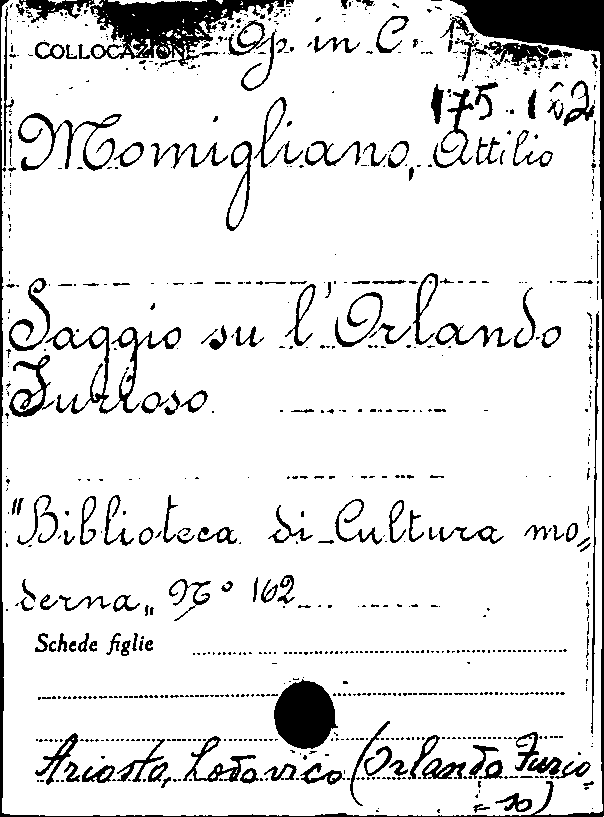 COLLOCAZIONE Op. in C. 17
175.162
Momigliano, Attilio
Saggio su l'Orlando
Furioso
"Biblioteca di Cultura mo„
derna„ N° 162
Schede figlie
Ariosto, Lodovico (Orlando Furio=
=so)